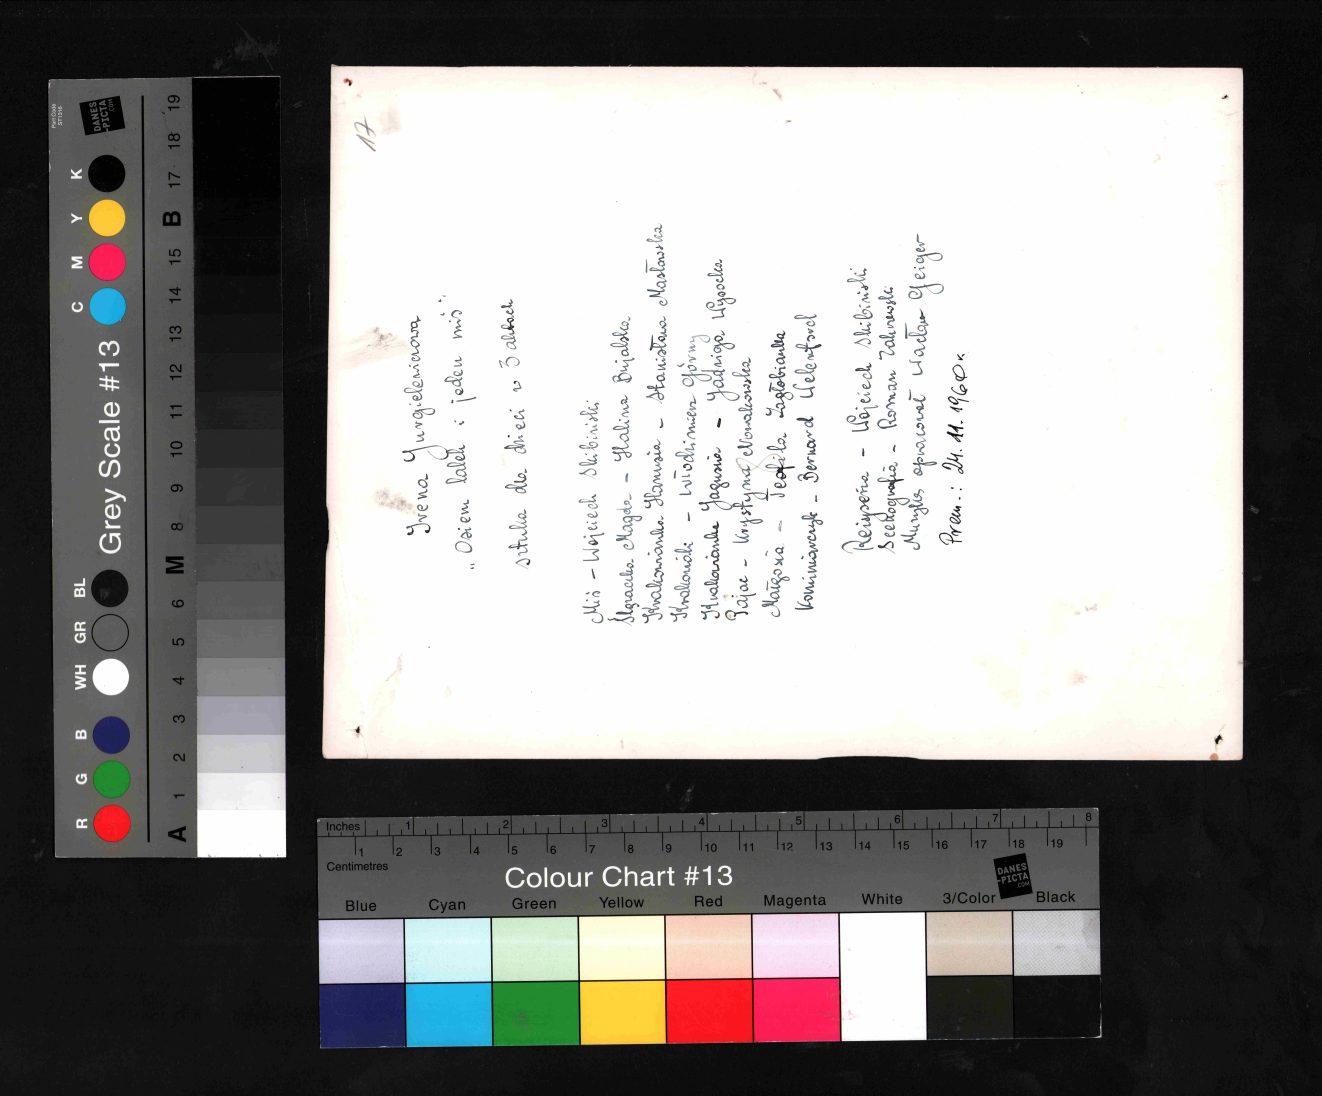 17
Irena Jurgielewiczowa
"Osiem lalek i jeden miś"
sztuka dla dzieci w 3 aktach
Miś - Wojciech Skibiński
Ślązaczka Magda - Halina Bujalska
Krakowianka Hanusia - Stanisława Masłowska
Krakowiak - Włodzimierz Górny
Krakowianka Jagusia - Jadwiga Wysocka
Pajac - Krystyna Nowakowska
Małgosia - Teofila Zagłobianka
Kominiarczyk - Bernard
Reżyseria - Wojciech Skibiński
Scenografia - Roman
Muzykę opracował Wacław Geiger
Prem.: 24.11.1960r.
Part Code
ST1316
DANES
-PICTA
.COM
Grey Scale #13
R G B WH GR BL C M Y K
A 1 2 3 4 5 6 M 8 9 10 11 12 13 14 15 B 17 18 19
Inches 1 2 3 4 5 6 7 8
1 2 3 4 5 6 7 8 9 10 11 12 13 14 15 16 17 18 19
Centimetres
Colour Chart #13
DANES
-PICTA
.COM
Blue Cyan Green Yellow Red Magenta White 3/Color Black